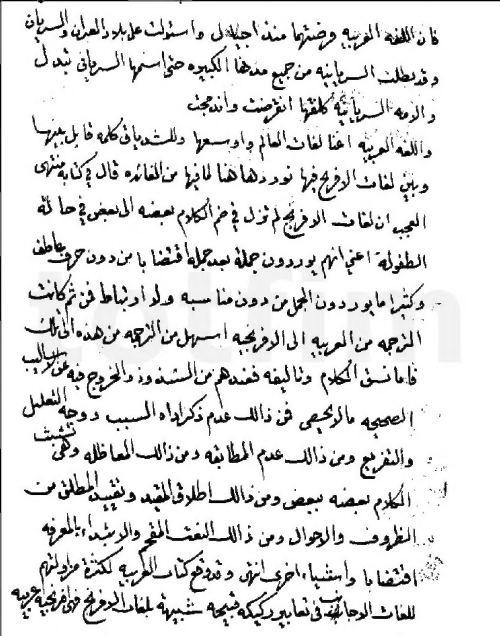 فان اللغه العربيه قرضتهما منذ اجيال واستولت على بلاد العراق والسريان
وقد بطلت السريانيه من جميع مدنها الكبيره حتى اسمها السرياني تبدل
والامه السريانيه كلغتها انقرضت واندمجت
واللغه العربيه اغنا لغات العالم واوسعها وللشدياق كلمه قابل بينها
وبين لغات الافرنج فيها نوردها هنا لما فيها من الفائده قال في كتابه منتهى
العجب ان لغات الافرنج لم تزل في ضم الكلام بعضه الى بعض في حالة
الطفولة اعني انهم يوردون جملة بعد جملة اقتضابا من دون حرف عاطف
وكثيرا ما يوردون الجمل من دون مناسبه ولا ارتباط فمن ثم كانت
الترجه من العربيه الى الافرنجيه اسهل من الترجه من هذه الى تلك
فاما نسق الكلام وتاليفه فعندهم من الشذوذ والخروج فيه عن اساليب
الصحيحه مالا يحصى فمن ذالك عدم ذكر اداه المسبب ووجه التعليل
والتفريع ومن ذالك عدم المطابقه ومن ذالك المعاظله وهي تشبث
الكلام بعضه ببعض ومن ذالك اطلاق المقيد وتقييد المطلق من
الظروف والاحوال ومن ذالك النعت المقحم والابتداء بالمعرفه
اقتضابا واشياء اخرى وقد وقع كتاب العربيه لكثرة مزاولتهم
للغات الاجانب في تعابير ركيكه قبيحه شبيهة بلغات الافرنج فهي افرنجية عربيه